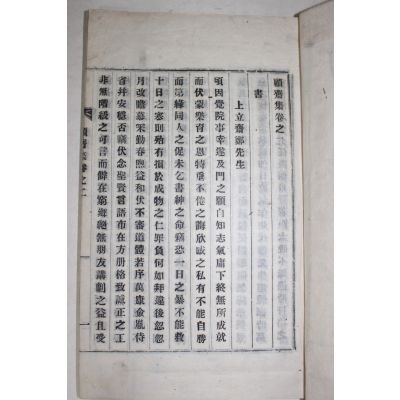 顧齋集卷之
書
上立齋鄭先生
頃因覺院事幸遂及門之願自知志氣庸下終無所成就
而伏蒙樂育之恩特垂不倦之誨欣戚之私有不能自勝
而第緣同人之促未乞書紳之命竊恐一日之暴不能救
十日之寒則殆有損於成物之仁罪負何如拜違後忽忽
月改瞻慕采勤春煦益和伏不審道體若序萬康侖胤侍
省幷安穩否竊伏念聖賢言語布在方册格致誠正之工
非無階級之可言而僻在窮鄉絶無朋友講劘之益且受
卷之二
一